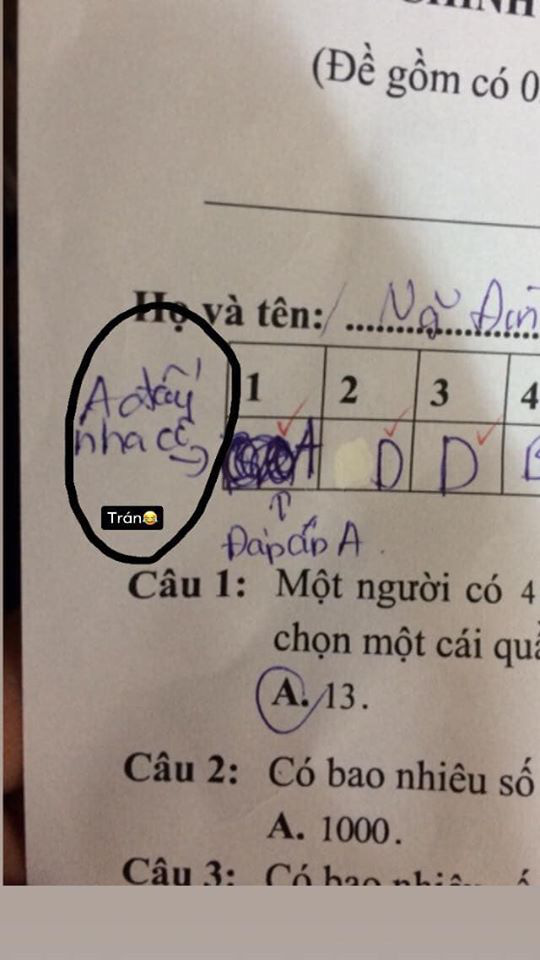 (Đề gồm có 0
Họ và tên: Ngữ Đan
1 2 3 4
A đấy
nha cc →
A D D
Trán😂
Đáp án A
Câu 1: Một người có 4
chọn một cái quầ
A. 13.
Câu 2: Có bao nhiêu số
A. 1000.
Câu 3: Có bao nhiêu số